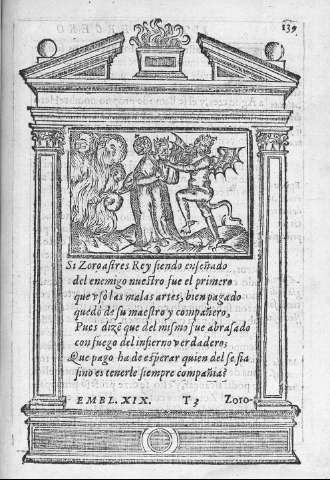 139
Si Zoroastres Rey siendo enseñado
del enemigo nuestro fue el primero
que vsó las malas artes, bien pagado
quedó de su maestro y compañero,
Pues dizē que del mismo fue abrasado
con fuego del infierno verdadero;
Que pago ha de esperar quien del se fia
sino es tenerle siempre compañia?
EMBL. XIX. T 3 Zoro-